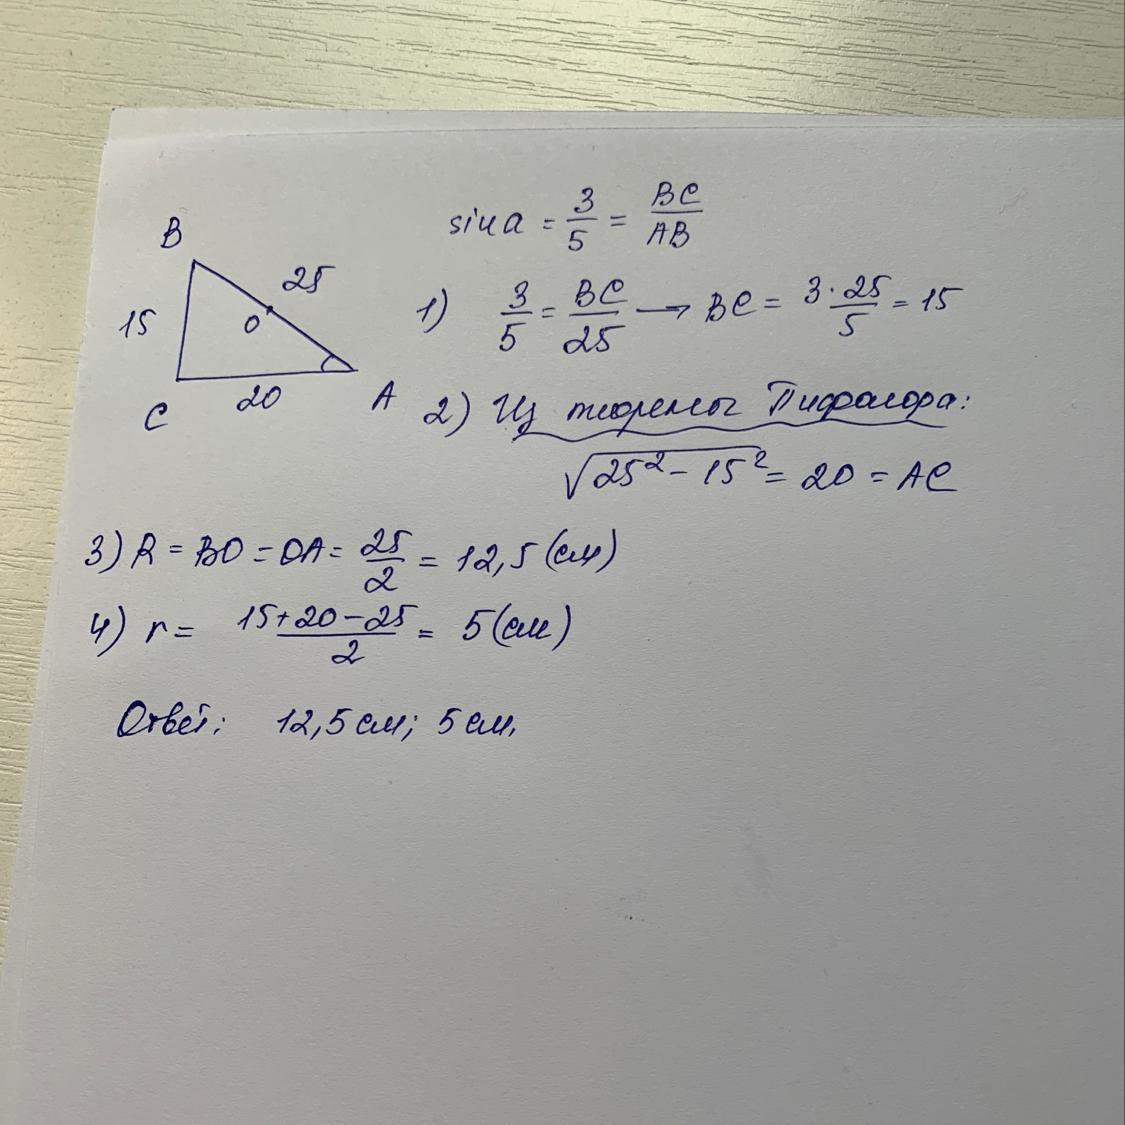 sin a = 3/5 = BC/AB
B
25
15
O
20
C
A
1) 3/5 = BC/25 → BC = 3·25/5 = 15
2) Из теоремы Пифагора:
√25² - 15² = 20 = AC
3) R = BO = OA = 25/2 = 12,5 (см)
4) r = 15+20-25/2 = 5 (см)
Ответ: 12,5 см; 5 см.